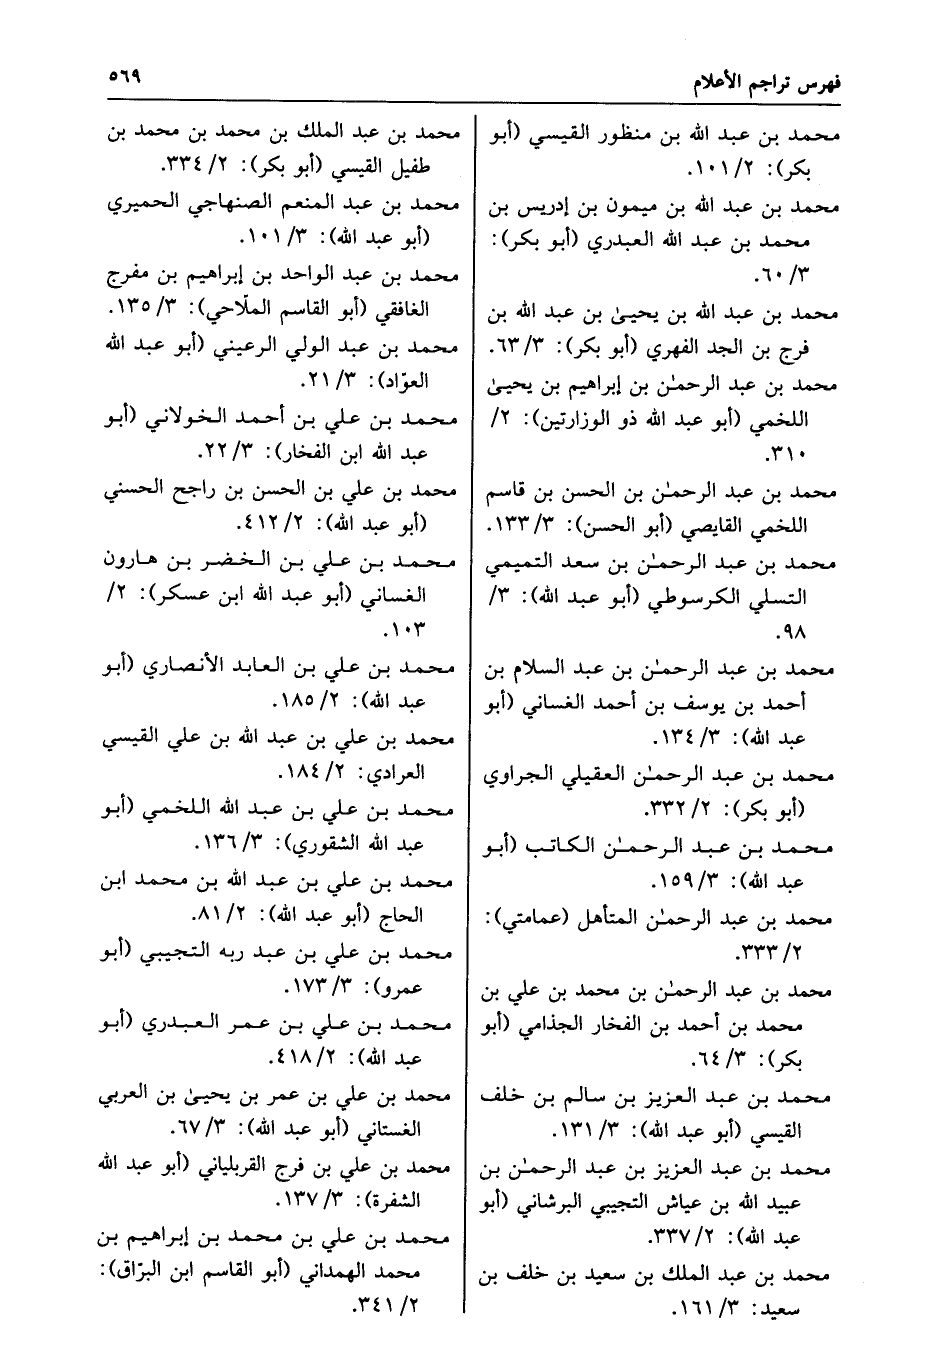 فهرس تراجم الأعلام
٥٦٩
محمد بن عبد الله بن منظور القيسي (أبو
بكر): ٢/ ١٠١.
محمد بن عبد الله بن ميمون بن إدريس بن
محمد بن عبد الله العبدري (أبو بكر):
٣/ ٦٠.
محمد بن عبد الله بن يحيىٰ بن عبد الله بن
فرج بن الجد الفهري (أبو بكر): ٣/ ٦٣.
محمد بن عبد الرحمـٰن بن إبراهيم بن يحيىٰ
اللخمي (أبو عبد الله ذو الوزارتين): ٢/
٣١٠.
محمد بن عبد الرحمـٰن بن الحسن بن قاسم
اللخمي القايصي (أبو الحسن): ٣/ ١٣٣.
محمد بن عبد الرحمـٰن بن سعد التميمي
التسلي الكرسوطي (أبو عبد الله): ٣/
٩٨.
محمد بن عبد الرحمـٰن بن عبد السلام بن
أحمد بن يوسف بن أحمد الغساني (أبو
عبد الله): ٣/ ١٣٤.
محمد بن عبد الرحمـٰن العقيلي الجراوي
(أبو بكر): ٢/ ٣٣٢.
محمد بن عبد الرحمـٰن الكاتب (أبو
عبد الله): ٣/ ١٥٩.
محمد بن عبد الرحمـٰن المتأهل (عمامتي):
٢/ ٣٣٣.
محمد بن عبد الرحمـٰن بن محمد بن علي بن
محمد بن أحمد بن الفخار الجذامي (أبو
بكر): ٣/ ٦٤.
محمد بن عبد العزيز بن سالم بن خلف
القيسي (أبو عبد الله): ٣/ ١٣١.
محمد بن عبد العزيز بن عبد الرحمـٰن بن
عبيد الله بن عياش التجيبي البرشاني (أبو
عبد الله): ٢/ ٣٣٧.
محمد بن عبد الملك بن سعيد بن خلف بن
سعيد: ٣/ ١٦١.
محمد بن عبد الملك بن محمد بن محمد بن
طفيل القيسي (أبو بكر): ٢/ ٣٣٤.
محمد بن عبد المنعم الصنهاجي الحميري
(أبو عبد الله): ٣/ ١٠١.
محمد بن عبد الواحد بن إبراهيم بن مفرج
الغافقي (أبو القاسم الملّاحي): ٣/ ١٣٥.
محمد بن عبد الولي الرعيني (أبو عبد الله
العوّاد): ٣/ ٢١.
محمد بن علي بن أحمد الخولاني (أبو
عبد الله ابن الفخار): ٣/ ٢٢.
محمد بن علي بن الحسن بن راجح الحسني
(أبو عبد الله): ٢/ ٤١٢.
محمد بن علي بن الخضر بن هارون
الغساني (أبو عبد الله ابن عسكر): ٢/
١٠٣.
محمد بن علي بن العابد الأنصاري (أبو
عبد الله): ٢/ ١٨٥.
محمد بن علي بن عبد الله بن علي القيسي
العرادي: ٢/ ١٨٤.
محمد بن علي بن عبد الله اللخمي (أبو
عبد الله الشقوري): ٣/ ١٣٦.
محمد بن علي بن عبد الله بن محمد ابن
الحاج (أبو عبد الله): ٢/ ٨١.
محمد بن علي بن عبد ربه التجيبي (أبو
عمرو): ٣/ ١٧٣.
محمد بن علي بن عمر العبدري (أبو
عبد الله): ٢/ ٤١٨.
محمد بن علي بن عمر بن يحيىٰ بن العربي
الغستاني (أبو عبد الله): ٣/ ٦٧.
محمد بن علي بن فرج القربلياني (أبو عبد الله
الشفرة): ٣/ ١٣٧.
محمد بن علي بن محمد بن إبراهيم بن
محمد الهمداني (أبو القاسم ابن البرّاق):
٢/ ٣٤١.